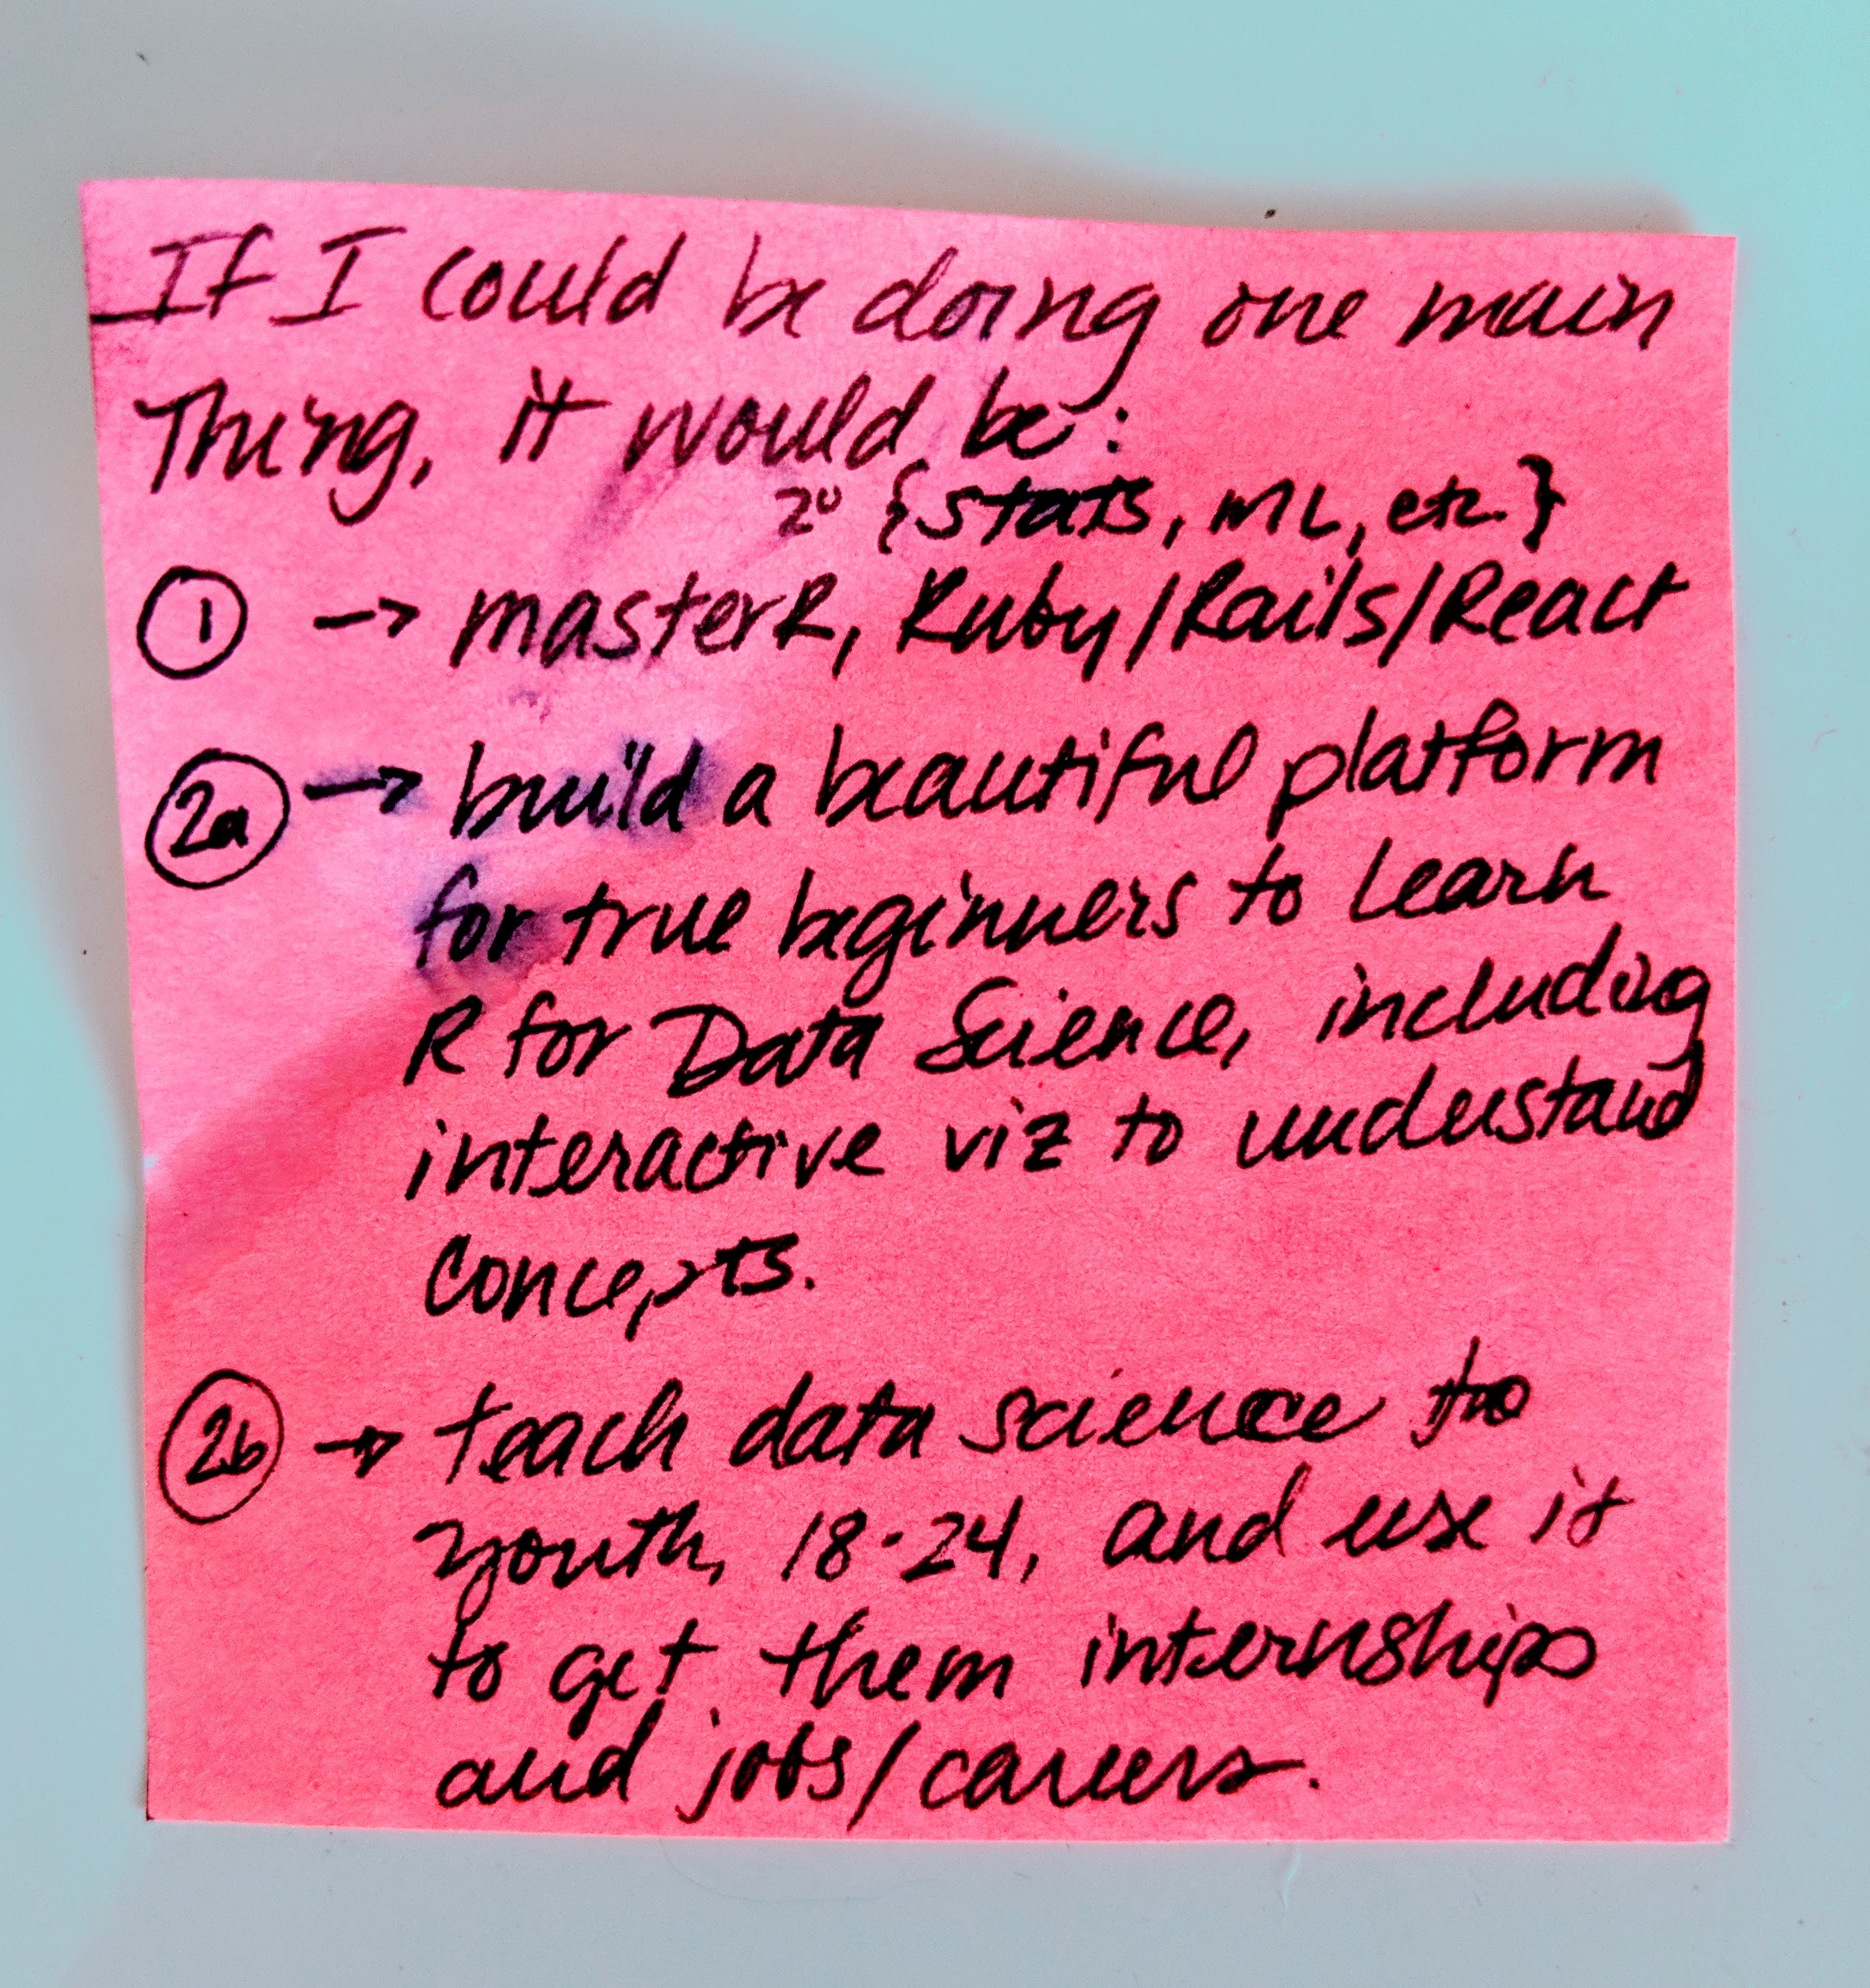 If I could be doing one main
Thing, it would be:
2° {stats, ML, etc.}
① → master R, Ruby/Rails/React
2a → build a beautiful platform
for true beginners to learn
R for Data Science, including
interactive viz to understand
concepts.
2b → teach data science to
youth, 18-24, and use it
to get them internships
and jobs/careers.